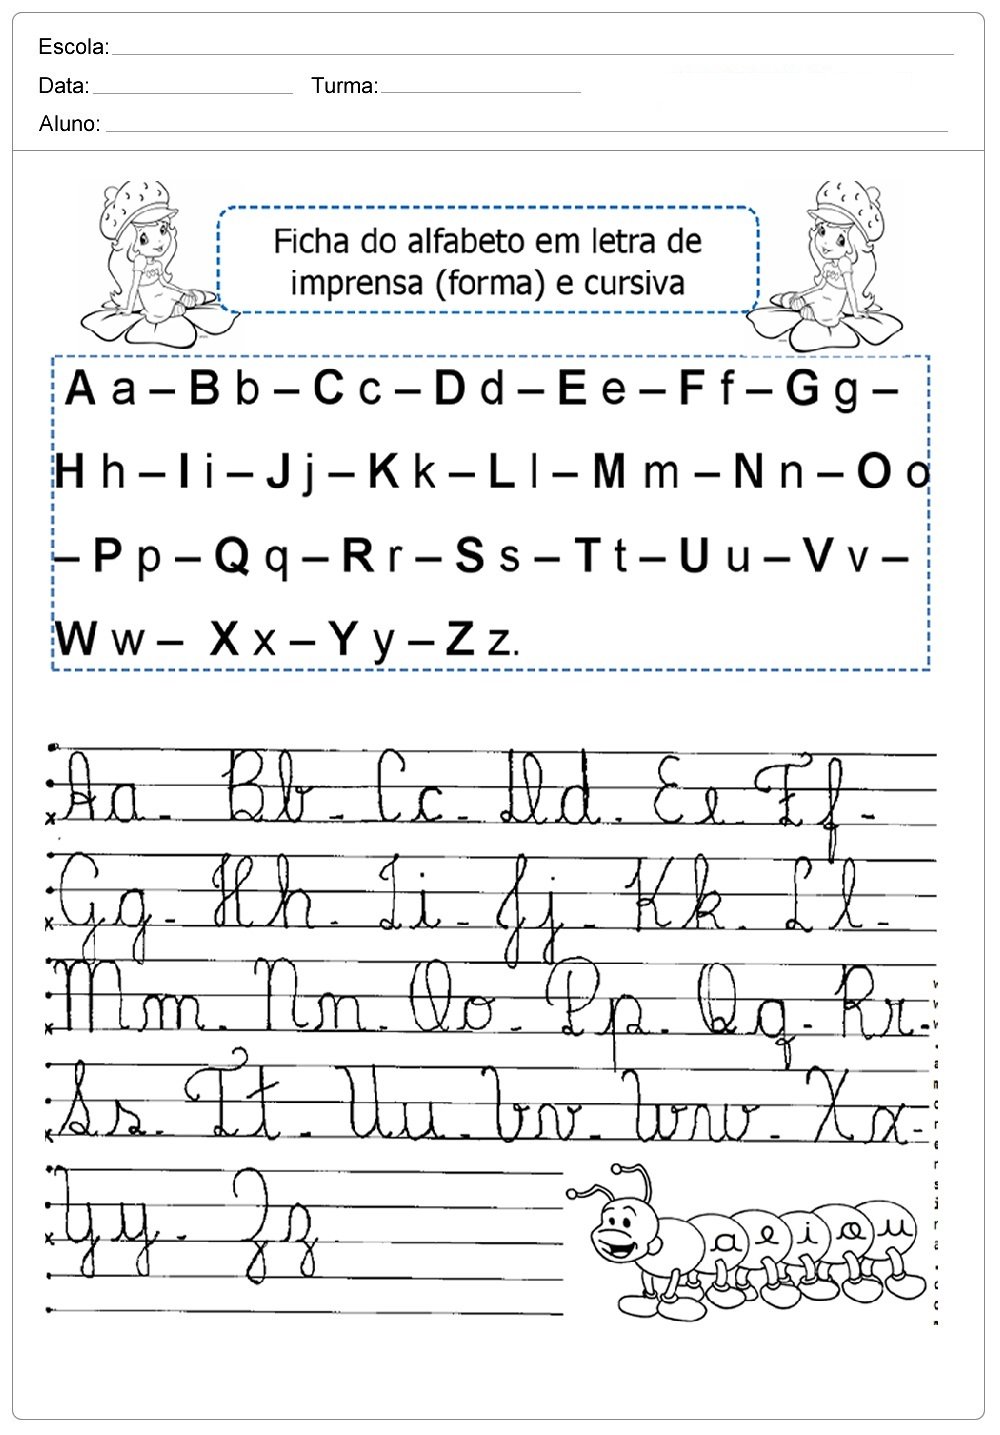 Escola:
Data: Turma:
Aluno:
Ficha do alfabeto em letra de
imprensa (forma) e cursiva
A a – B b – C c – D d – E e – F f – G g –
H h – I i – J j – K k – L l – M m – N n – O o
– P p – Q q – R r – S s – T t – U u – V v –
W w – X x – Y y – Z z.
Aa - Bb - Cc - Dd - Ee - Ff -
Gg - Hh - Ii - Jj - Kk - Ll -
Mm - Nn - Oo - Pp - Qq - Rr -
Ss - Tt - Uu - Vv - Ww - Xx -
Yy - Zz
a e i o u